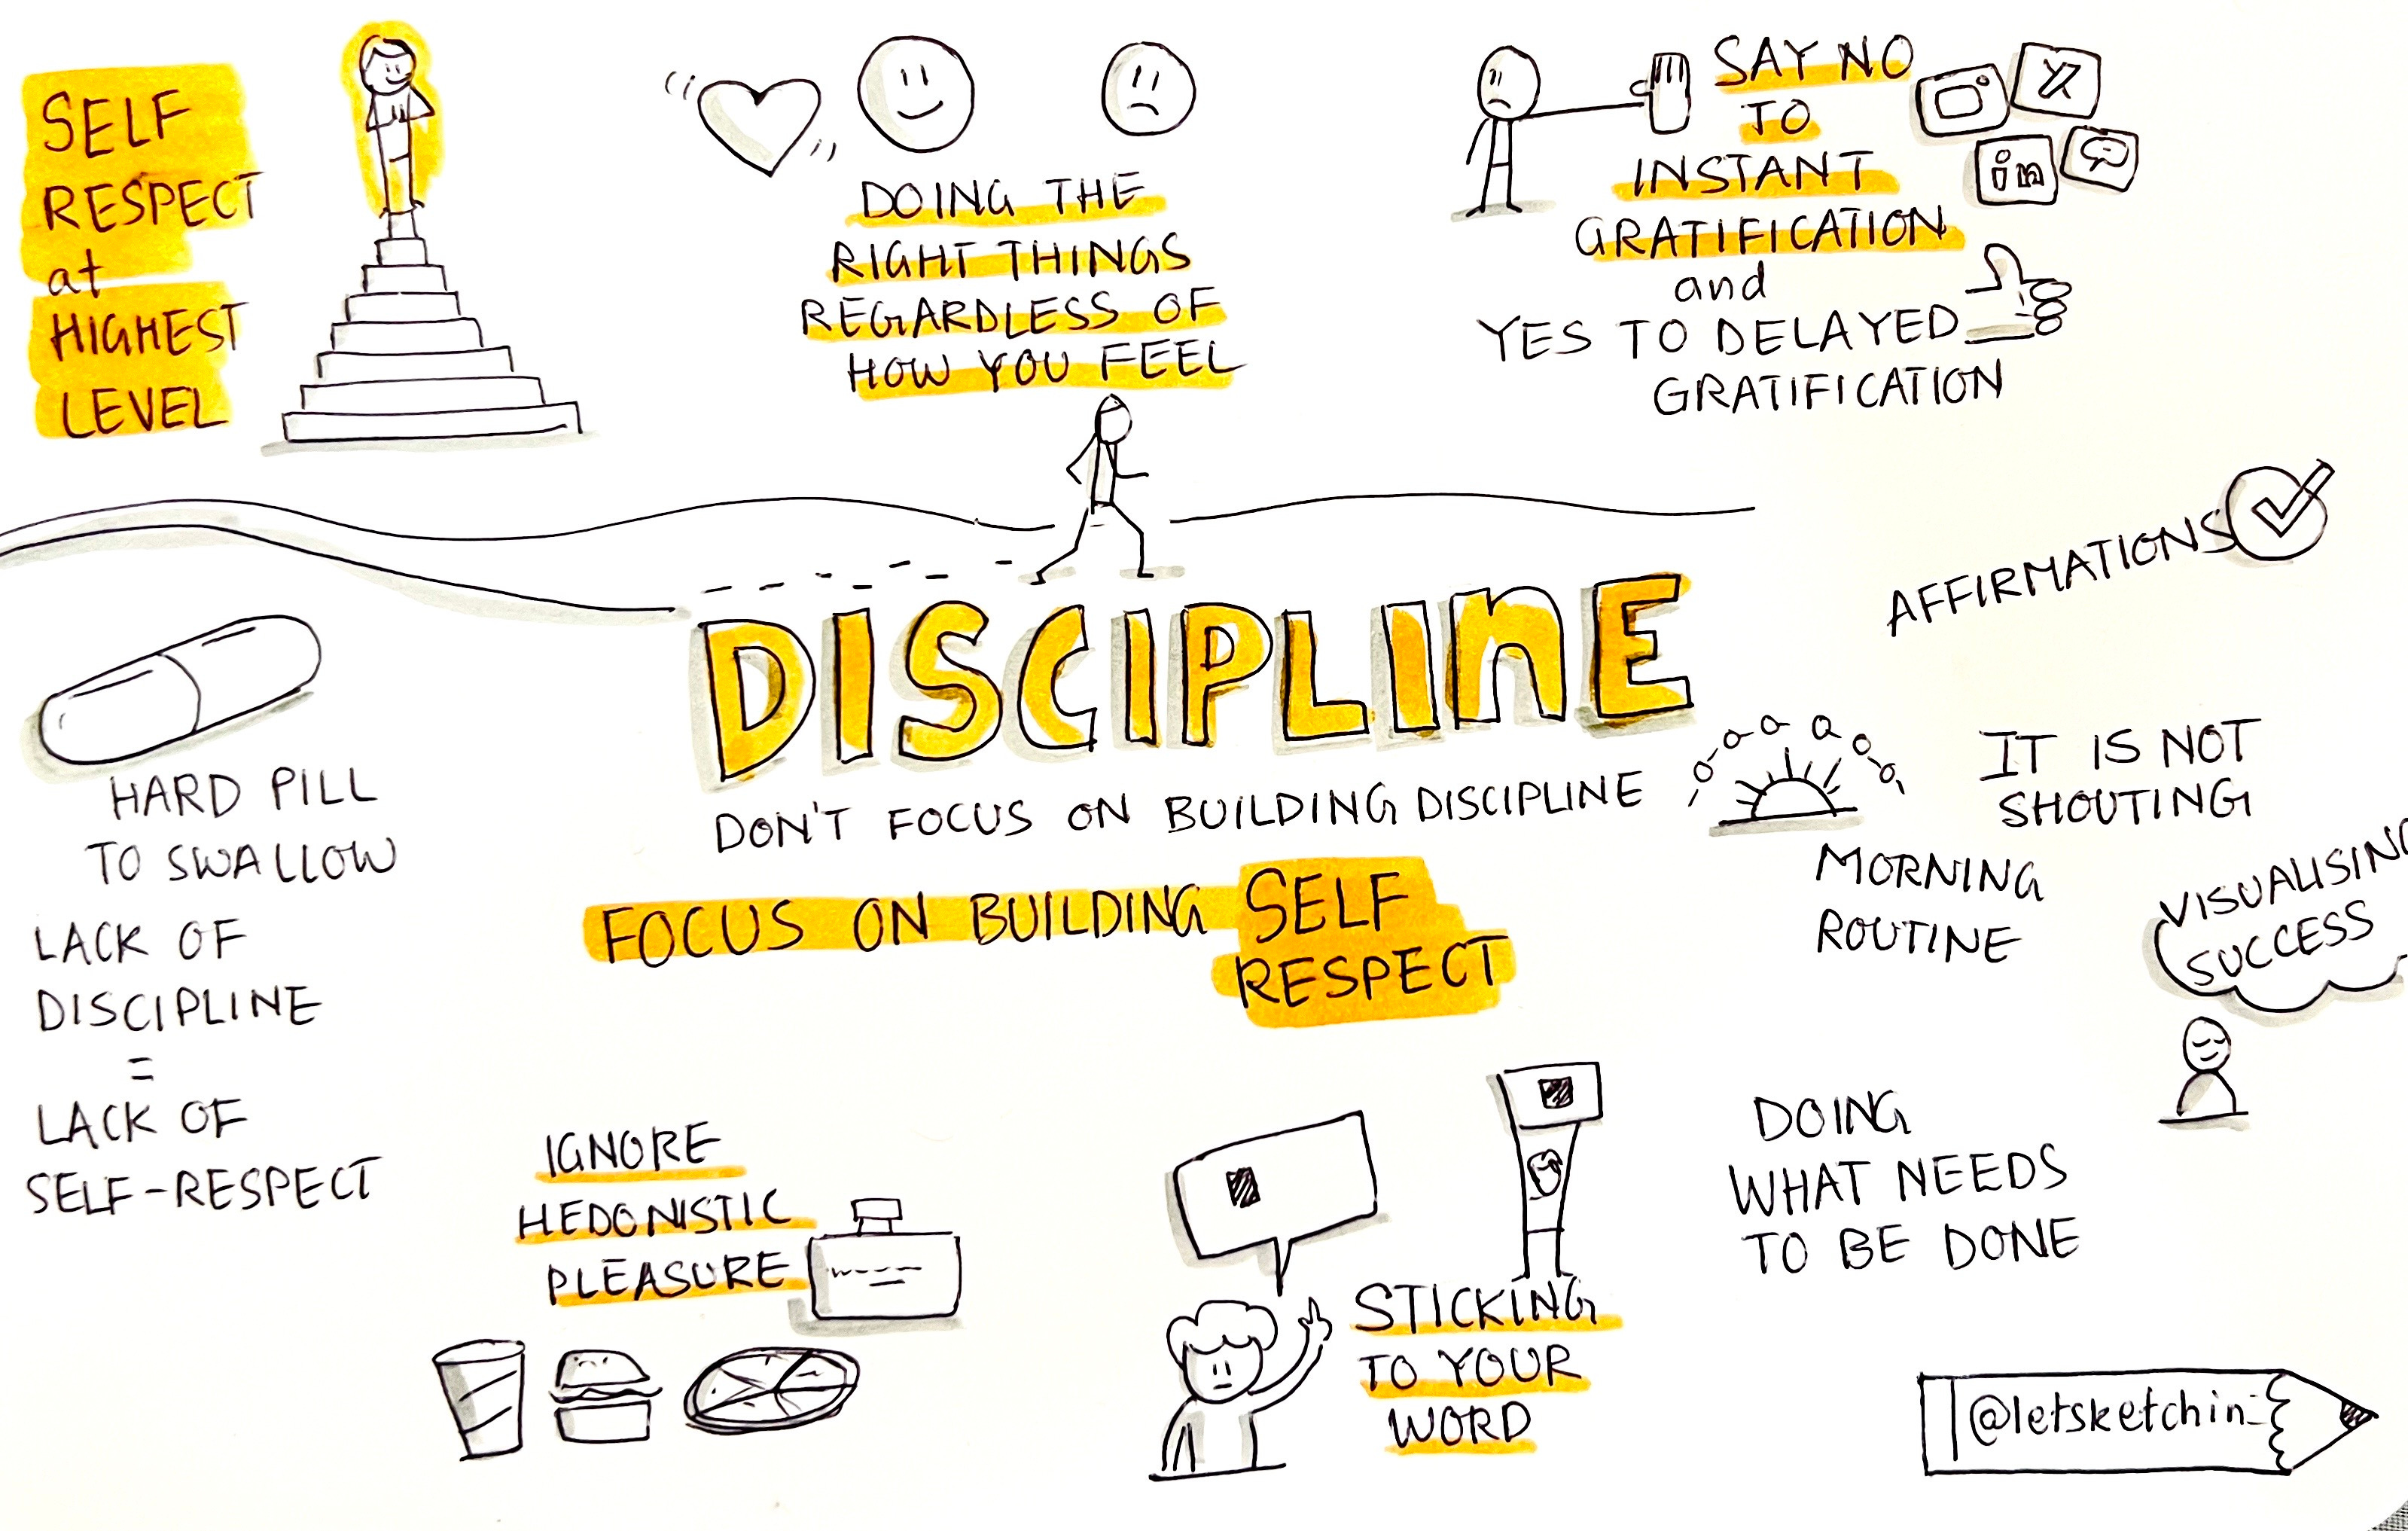 SELF
RESPECT
at
HIGHEST
LEVEL
DOING THE
RIGHT THINGS
REGARDLESS OF
HOW YOU FEEL
SAY NO
TO
INSTANT
GRATIFICATION
and
YES TO DELAYED
GRATIFICATION
in
AFFIRMATIONS
DISCIPLINE
DON'T FOCUS ON BUILDING DISCIPLINE
FOCUS ON BUILDING SELF
RESPECT
HARD PILL
TO SWALLOW
LACK OF
DISCIPLINE
=
LACK OF
SELF-RESPECT
IT IS NOT
SHOUTING
MORNING
ROUTINE
VISUALISING
SUCCESS
IGNORE
HEDONISTIC
PLEASURE
STICKING
TO YOUR
WORD
DOING
WHAT NEEDS
TO BE DONE
@letsketchin